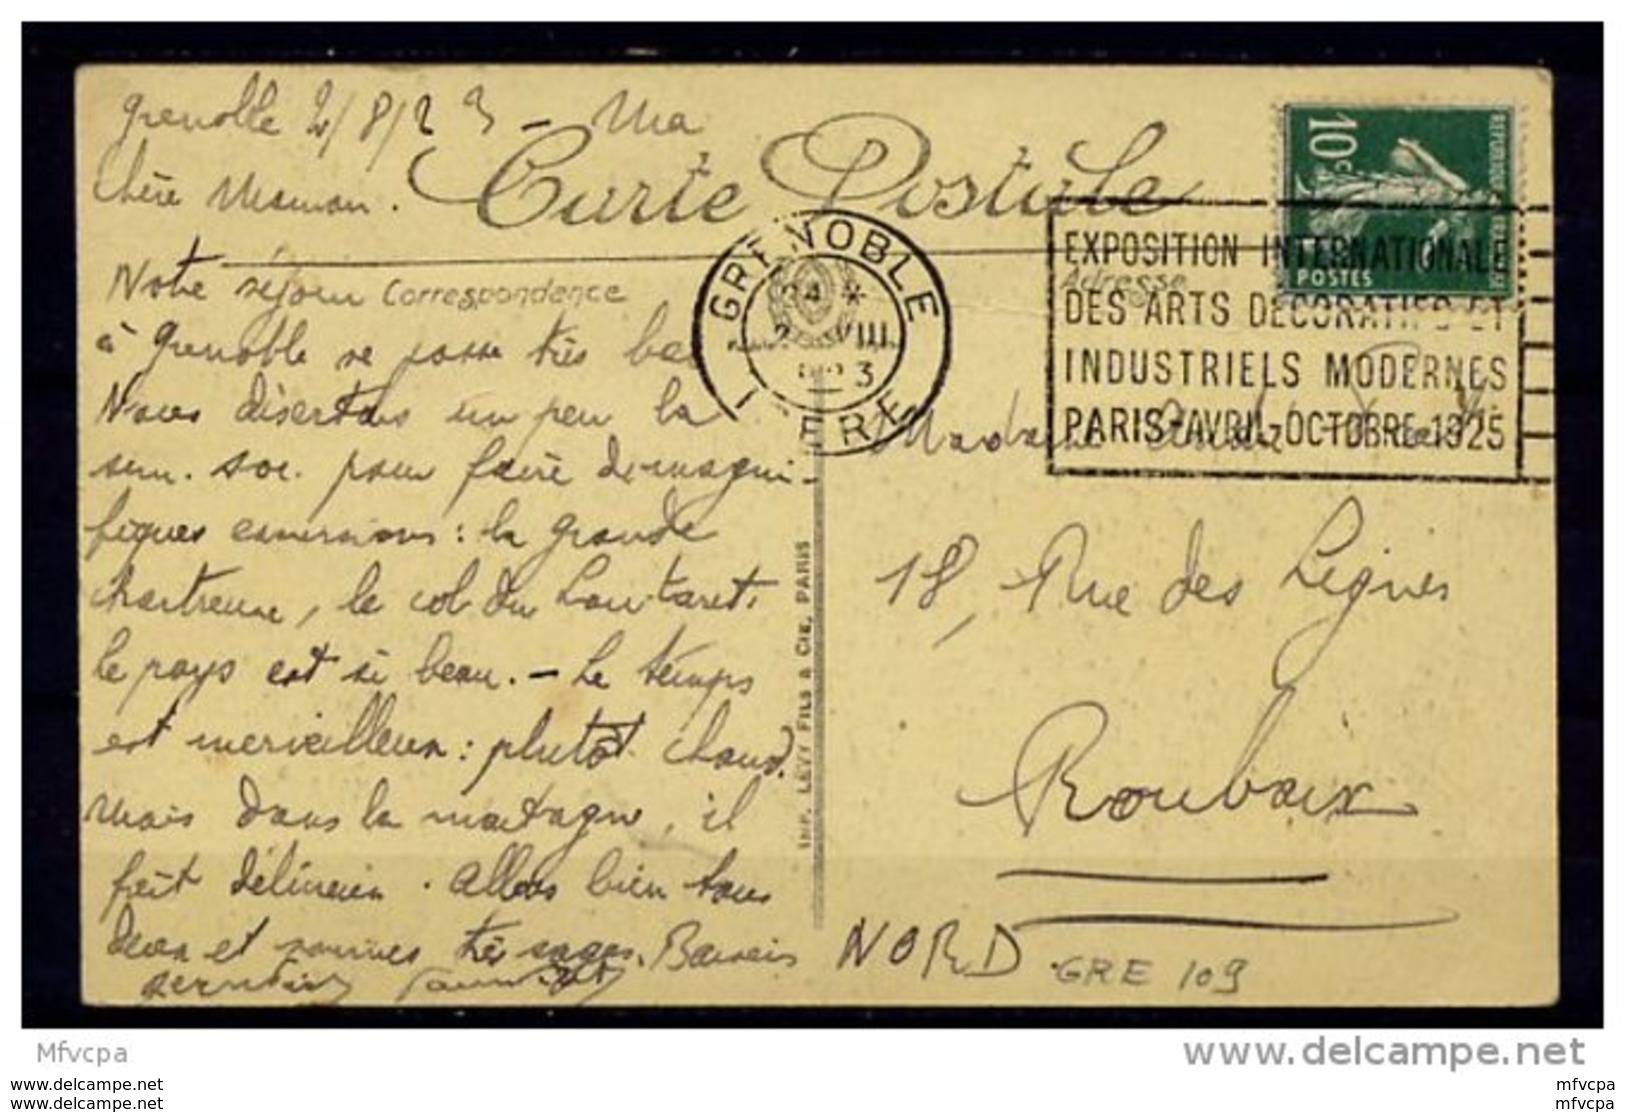 Grenoble 2/8/23 - Ma
Chère Maman.
Carte Postale
Notre séjour
Correspondance
à Grenoble se passe très bien
Nous désertons un peu la
sem. soc. pour faire de magni-
fiques excursions : la grande
chartreuse, le col du Lautaret,
le pays est si beau. - Le temps
est merveilleux : plutôt chaud.
mais dans la montagne, il
fait délicieux. Allons bien tous
deux et sommes très sages. Baisers
GRENOBLE
24 *
2 VIII
3
ISERE
10c
POSTES
EXPOSITION INTERNATIONALE
Adresse
DES ARTS DECORATIFS ET
INDUSTRIELS MODERNES
PARIS-AVRIL-OCTOBRE-1925
Madame
18, Rue des Lignes
Roubaix
NORD
GRE 109
IMP. LEVY FILS & CIE, PARIS
Mfvcpa
www.delcampe.net
www.delcampe.net
www.delcampe.net
mfvcpa
mfvcpa